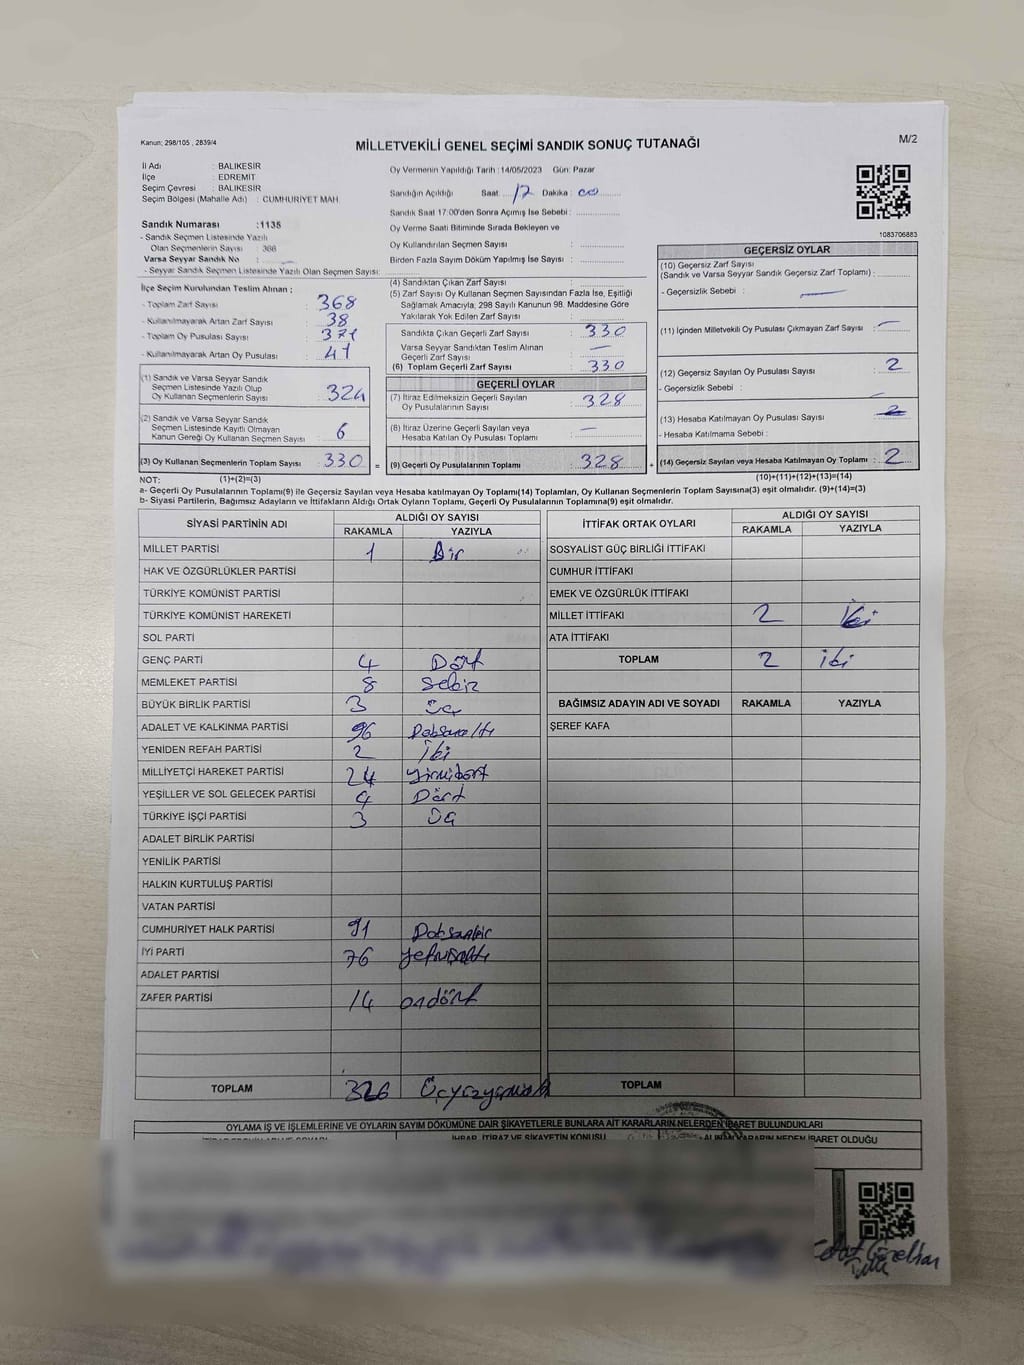 Kanun; 298/105 , 2839/4
MİLLETVEKİLİ GENEL SEÇİMİ SANDIK SONUÇ TUTANAĞI
M/2
İl Adı : BALIKESİR
İlçe : EDREMIT
Seçim Çevresi : BALIKESİR
Seçim Bölgesi (Mahalle Adı) : CUMHURİYET MAH.
Sandık Numarası :1135
- Sandık Seçmen Listesinde Yazılı
Olan Seçmenlerin Sayısı : 366
Varsa Seyyar Sandık No :
- Seyyar Sandık Seçmen Listesinde Yazılı Olan Seçmen Sayısı:
Oy Vermenin Yapıldığı Tarih :14/05/2023 Gün: Pazar
Sandığın Açıldığı Saat 17 Dakika : 00
Sandık Saat 17:00'den Sonra Açımış İse Sebebi :
Oy Verme Saati Bitiminde Sırada Bekleyen ve
Oy Kullandırılan Seçmen Sayısı :
Birden Fazla Sayım Döküm Yapılmış İse Sayısı :
1083706883
İlçe Seçim Kurulundan Teslim Alınan ;
- Toplam Zarf Sayısı : 368
- Kullanılmayarak Artan Zarf Sayısı : 38
- Toplam Oy Pusulası : 371
- Kullanılmayarak Artan Oy Pusulası : 41
(1) Sandık ve Varsa Seyyar Sandık
Seçmen Listesinde Yazılı Olup
Oy Kullanan Seçmenlerin Sayısı : 324
(2) Sandık ve Varsa Seyyar Sandık
Seçmen Listesinde Kayıtlı Olmayan
Kanun Gereği Oy Kullanan Seçmen Sayısı : 6
(3) Oy Kullanan Seçmenlerin Toplam Sayısı : 330 =
(4) Sandıktan Çıkan Zarf Sayısı :
(5) Zarf Sayısı Oy Kullanan Seçmen Sayısından Fazla İse, Eşitliği
Sağlamak Amacıyla, 298 Sayılı Kanunun 98. Maddesine Göre
Yakılarak Yok Edilen Zarf Sayısı :
Sandıkta Çıkan Geçerli Zarf Sayısı : 330
Varsa Seyyar Sandıktan Teslim Alınan
Geçerli Zarf Sayısı : —
(6) Toplam Geçerli Zarf Sayısı : 330
GEÇERLİ OYLAR
(7) İtiraz Edilmeksizin Geçerli Sayılan
Oy Pusulalarının Sayısı : 328
(8) İtiraz Üzerine Geçerli Sayılan veya
Hesaba Katılan Oy Pusulası Toplamı : —
(9) Geçerli Oy Pusulalarının Toplamı : 328 +
GEÇERSİZ OYLAR
(10) Geçersiz Zarf Sayısı
(Sandık ve Varsa Seyyar Sandık Geçersiz Zarf Toplamı) :
- Geçersizlik Sebebi : —
(11) İçinden Milletvekili Oy Pusulası Çıkmayan Zarf Sayısı : —
(12) Geçersiz Sayılan Oy Pusulası Sayısı : 2
- Geçersizlik Sebebi : —
(13) Hesaba Katılmayan Oy Pusulası Sayısı :
- Hesaba Katılmama Sebebi :
(14) Geçersiz Sayılan veya Hesaba Katılmayan Oy Toplamı : 2
NOT: (1)+(2)=(3) (10)+(11)+(12)+(13)=(14)
a- Geçerli Oy Pusulalarının Toplamı(9) ile Geçersiz Sayılan veya Hesaba katılmayan Oy Toplamı(14) Toplamları, Oy Kullanan Seçmenlerin Toplam Sayısına(3) eşit olmalıdır. (9)+(14)=(3)
b- Siyasi Partilerin, Bağımsız Adayların ve İttifakların Aldığı Ortak Oyların Toplamı, Geçerli Oy Pusulalarının Toplamına(9) eşit olmalıdır.
SİYASİ PARTİNİN ADI ALDIĞI OY SAYISI
RAKAMLA YAZIYLA
MİLLET PARTİSİ 1 Bir
HAK VE ÖZGÜRLÜKLER PARTİSİ
TÜRKİYE KOMÜNİST PARTİSİ
TÜRKİYE KOMÜNİST HAREKETİ
SOL PARTİ
GENÇ PARTİ 4 Dört
MEMLEKET PARTİSİ 8 Sekiz
BÜYÜK BİRLİK PARTİSİ 3 Üç
ADALET VE KALKINMA PARTİSİ 96 Doksanaltı
YENİDEN REFAH PARTİSİ 2 İki
MİLLİYETÇİ HAREKET PARTİSİ 24 yirmidört
YEŞİLLER VE SOL GELECEK PARTİSİ 4 Dört
TÜRKİYE İŞÇİ PARTİSİ 3 Üç
ADALET BİRLİK PARTİSİ
YENİLİK PARTİSİ
HALKIN KURTULUŞ PARTİSİ
VATAN PARTİSİ
CUMHURİYET HALK PARTİSİ 91 Doksanbir
İYİ PARTİ 76 yetmişaltı
ADALET PARTİSİ
ZAFER PARTİSİ 14 ondört
TOPLAM 326
İTTİFAK ORTAK OYLARI ALDIĞI OY SAYISI
RAKAMLA YAZIYLA
SOSYALİST GÜÇ BİRLİĞİ İTTİFAKI
CUMHUR İTTİFAKI
EMEK VE ÖZGÜRLÜK İTTİFAKI
MİLLET İTTİFAKI 2 İki
ATA İTTİFAKI
TOPLAM 2 iki
BAĞIMSIZ ADAYIN ADI VE SOYADI RAKAMLA YAZIYLA
ŞEREF KAFA
TOPLAM
OYLAMA İŞ VE İŞLEMLERİNE VE OYLARIN SAYIM DÖKÜMÜNE DAİR ŞİKAYETLERLE BUNLARA AİT KARARLARIN NELERDEN İBARET BULUNDUKLARI
İHBAR, İTİRAZ VE ŞİKAYETİN KONUSU ALINAN KARARIN NEDEN İBARET OLDUĞU